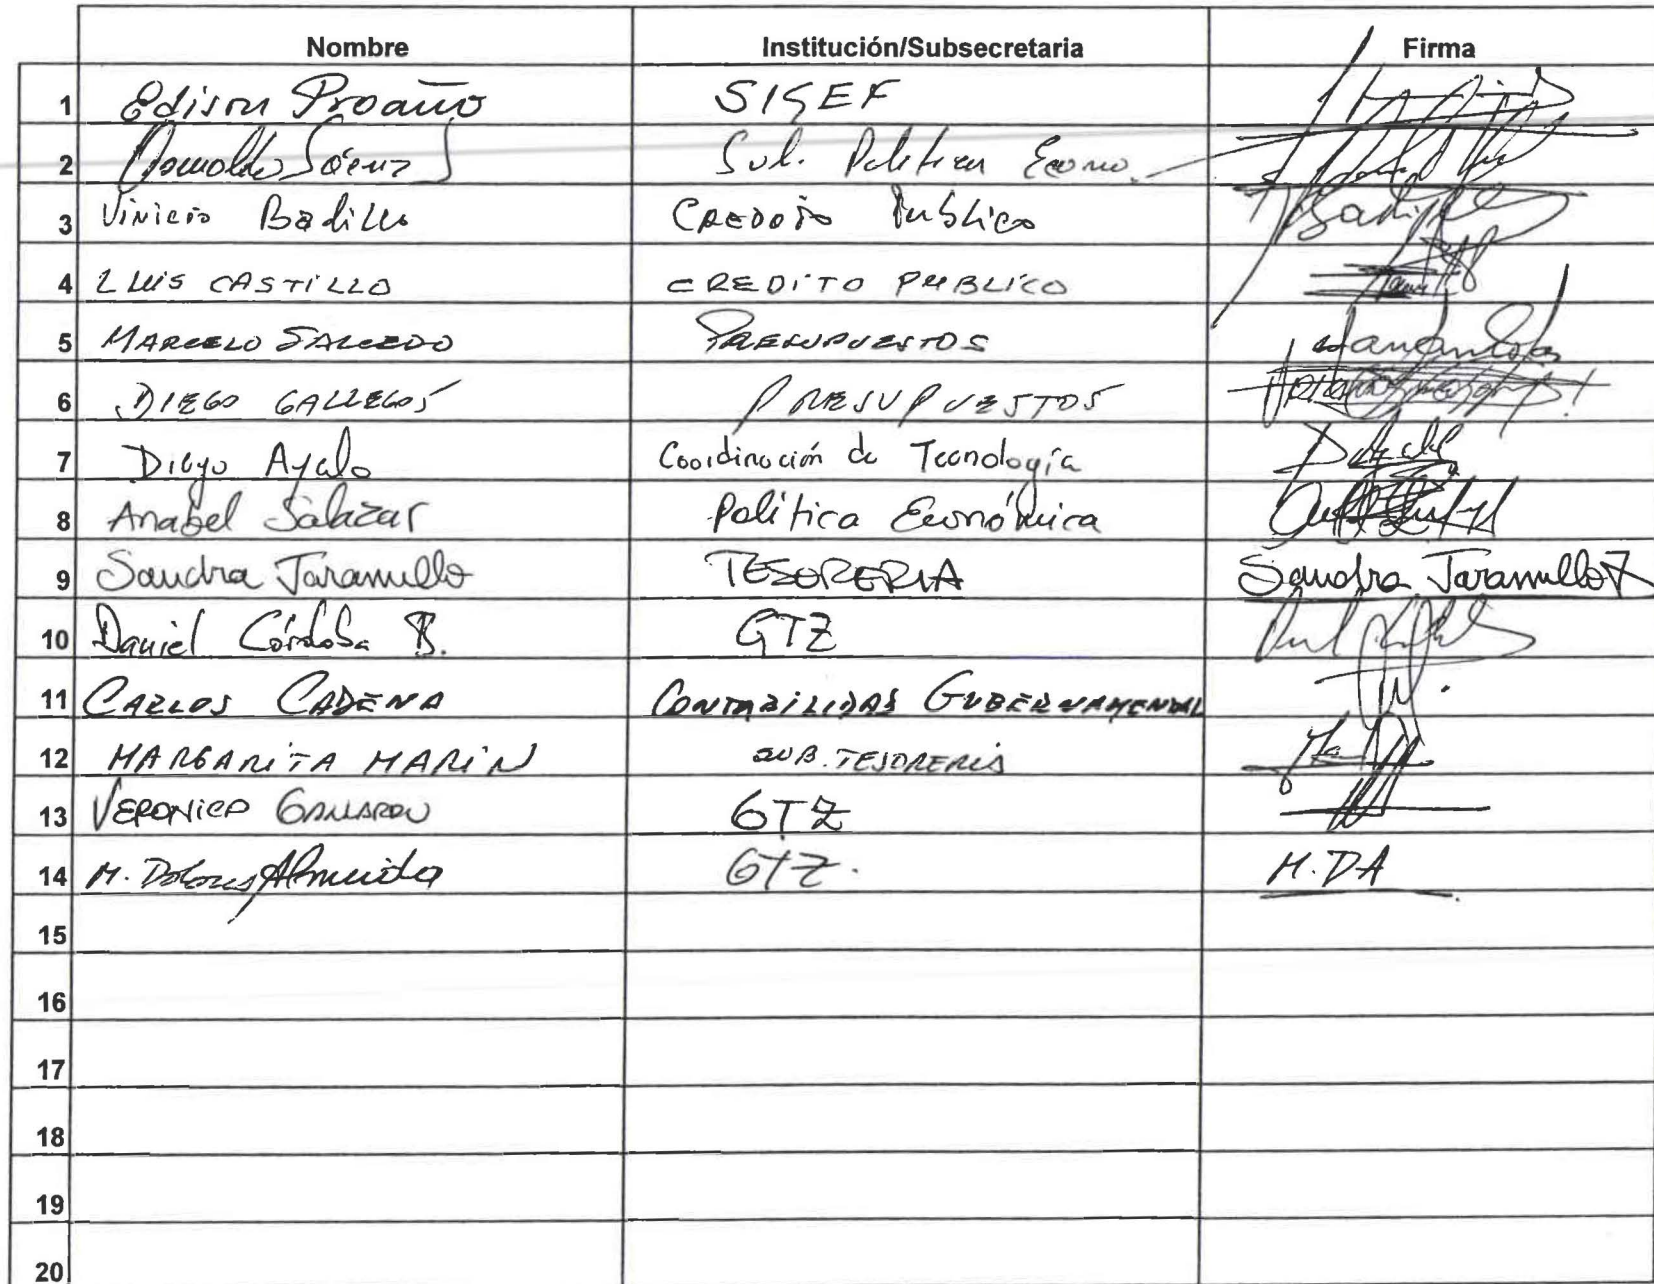 Nombre Institución/Subsecretaria Firma
1 Edison Proaño SIGEF
2 Oswaldo Sáenz S Sub. Política Econo.
3 Vinicio Badillo CREDITO Publico
4 LUIS CASTILLO CREDITO PUBLICO
5 MARCELO SALCEDO PRESUPUESTOS
6 DIEGO GALLEGOS PRESUPUESTOS
7 Diego Ayala Coordinación de Tecnología
8 Anabel Salazar Política Económica
9 Sandra Jaramillo TESORERIA Sandra Jaramillo
10 Daniel Córdoba B. GTZ
11 CARLOS CADENA CONTABILIDAD GUBERNAMENTAL
12 MARGARITA MARIN SUB. TESORERIA
13 VERONICA GALLARDO GTZ
14 M. Dolores Almeida GTZ. M.DA
15
16
17
18
19
20